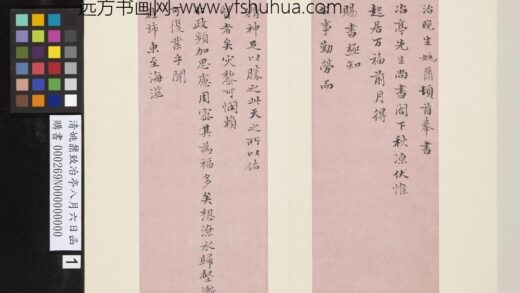 远方书画网-www.yfshuhua.com
治晚生姚鼐頓首奉書
冶亭先生尚書閣下秋凉伏惟
起居万福前月得
賜書極知
事勤勞而
精神足以勝之此天之所以佑
者矣灾黎可憫賴
政頻加思慮周密其為福多矣想潦水歸壑漸
可復業乎聞
旌旆東至海滋
清姚鼐致冶亭八月六日函
購書 000269N000000000
1